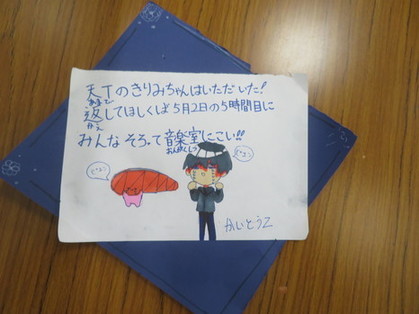 天丁のきりみちゃんはいただいた!
返してほしくば5月2日の5時間目に
かえ
みんなそろって音楽室にこい!!
おんがくしつ
かいとうZ